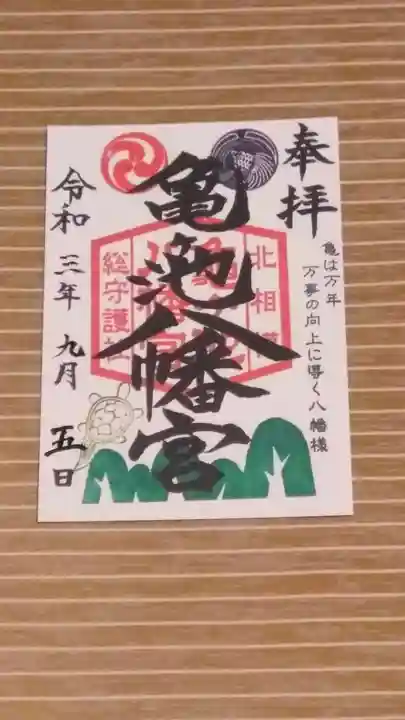 奉拝
亀は万年
万事の向上に導く八幡様
亀池八幡宮
北相模
総守護社
令和三年九月五日